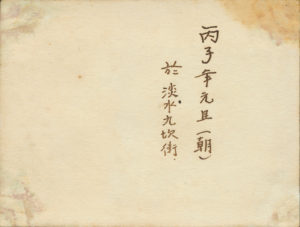 丙子年元旦(朝)
於淡水九坎街.